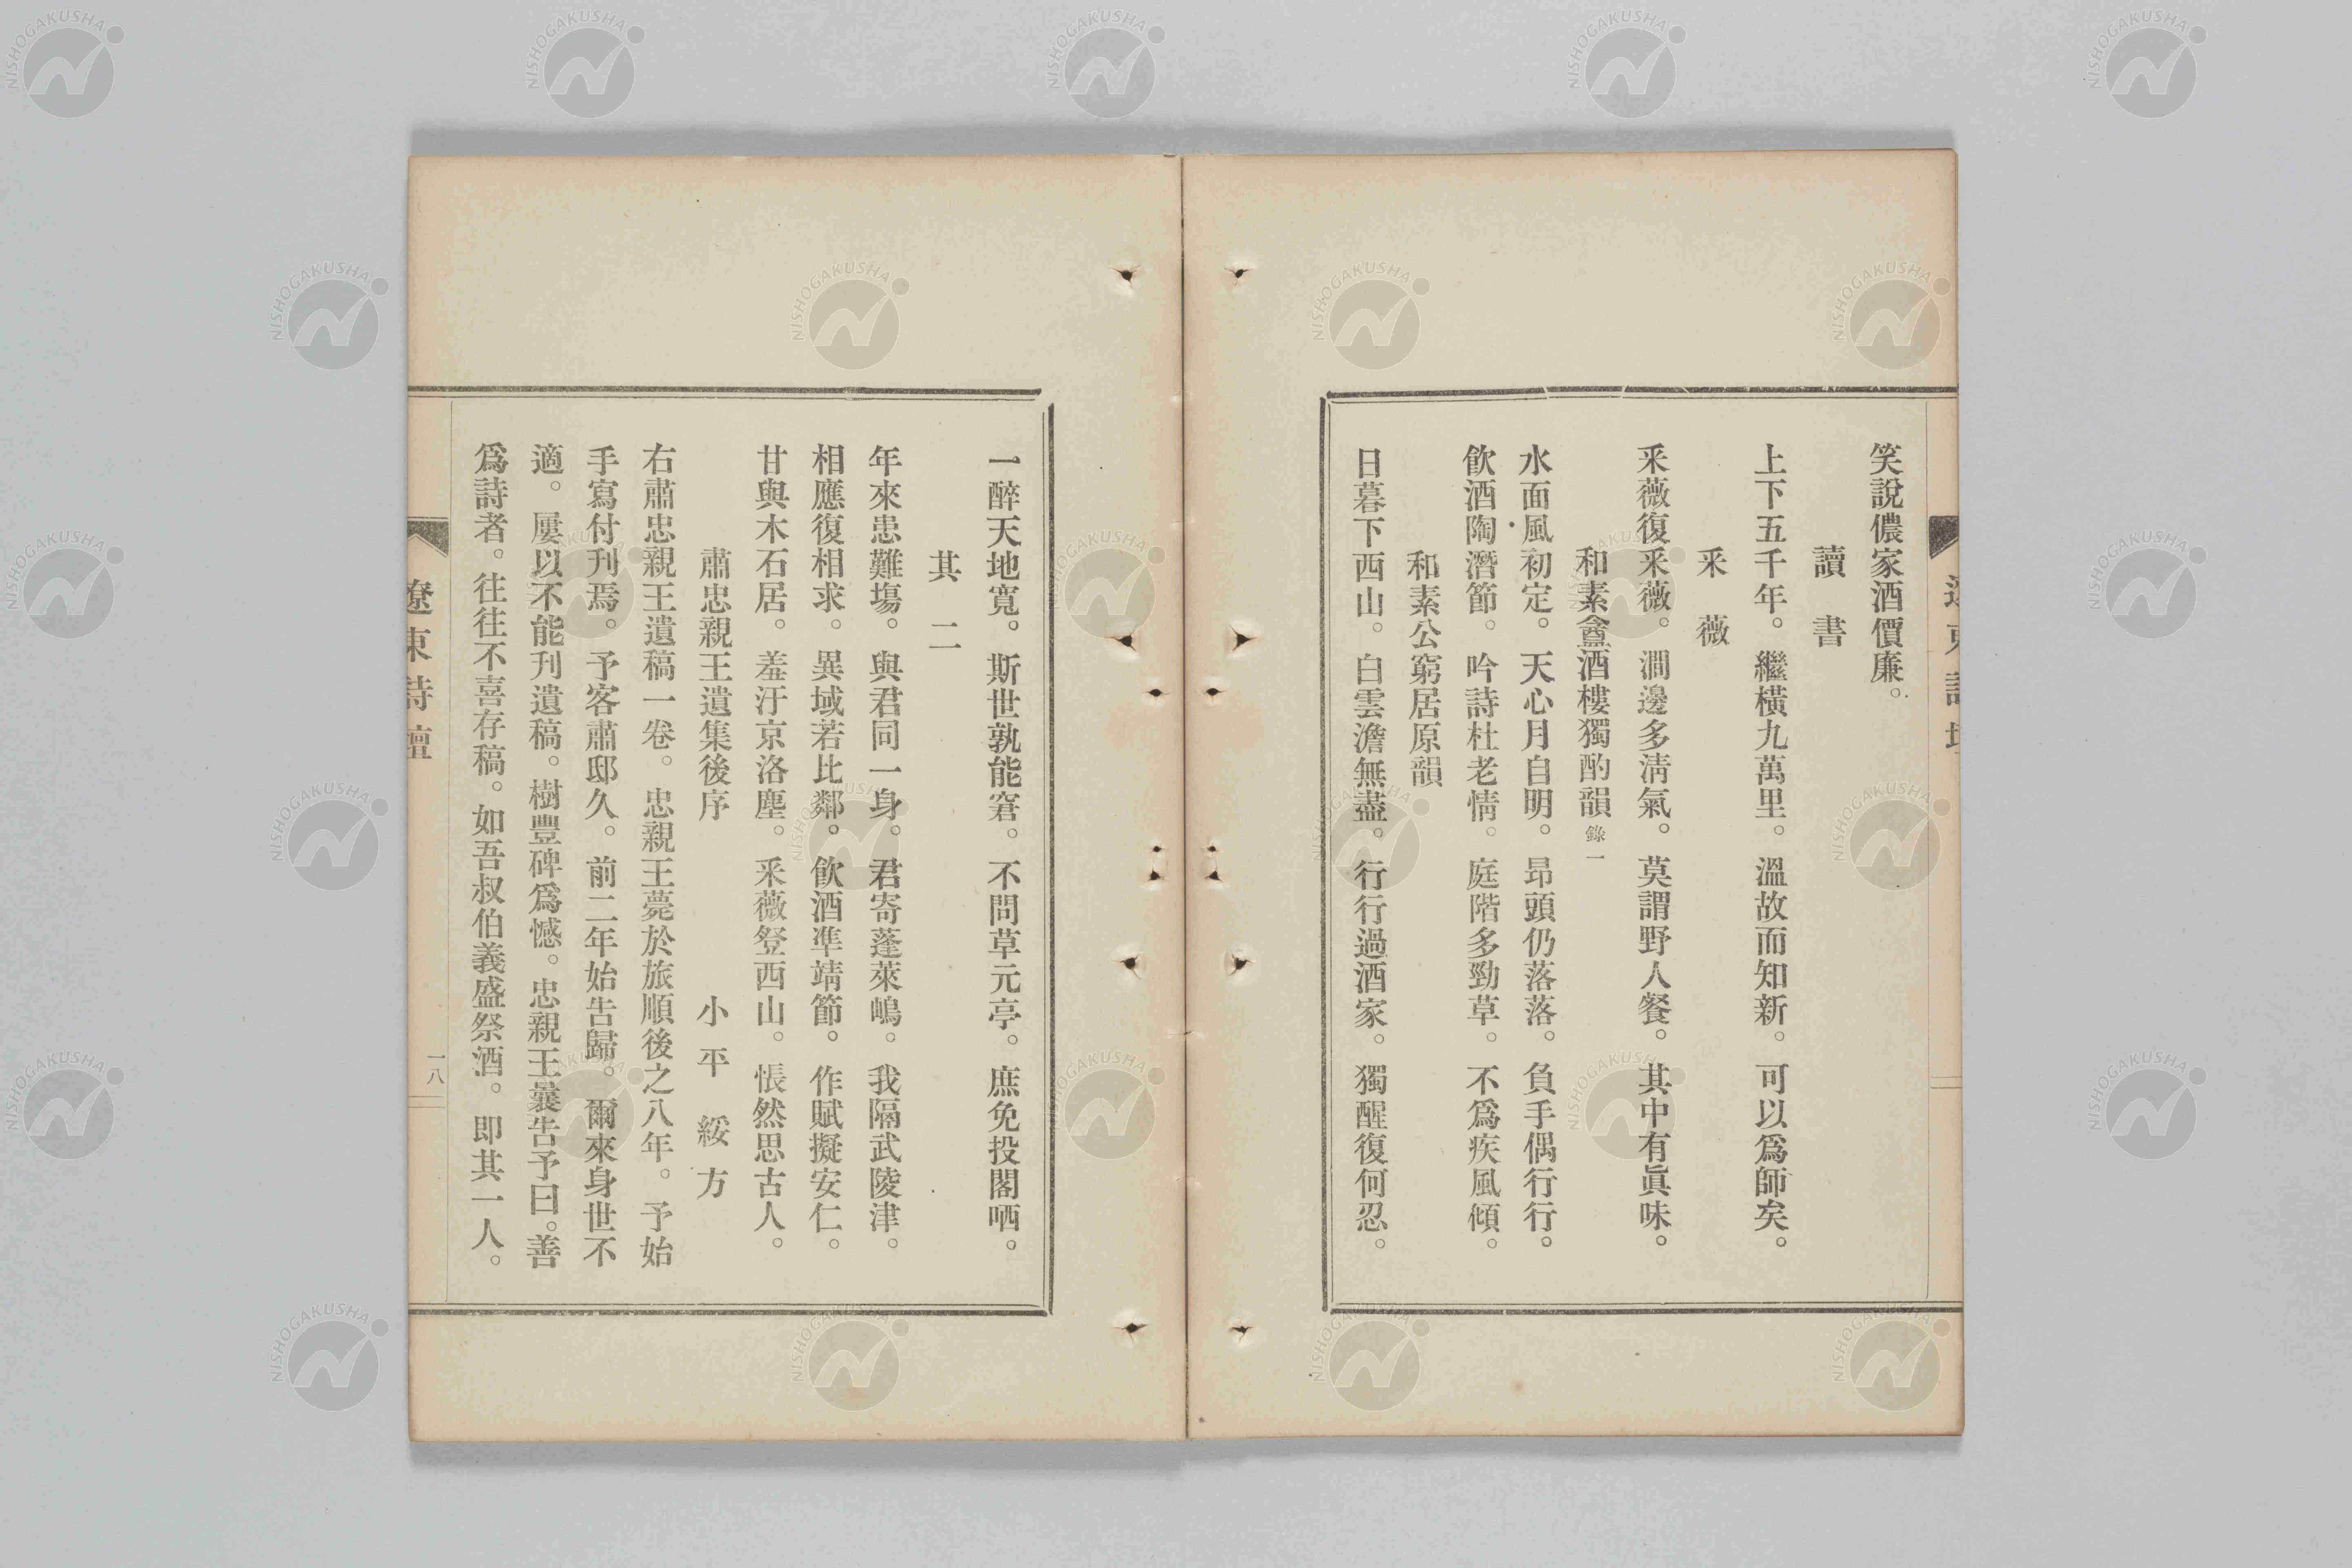 笑說儂家酒價廉。
讀書
上下五千年。繼橫九萬里。溫故而知新。可以爲師矣。
釆薇
釆薇復釆薇。澗邊多淸氣。莫謂野人餐。其中有眞味。
和素盦酒樓獨酌韻 錄一
水面風初定。天心月自明。昂頭仍落落。負手偶行行。
飮酒陶潛節。吟詩杜老情。庭階多勁草。不爲疾風傾。
和素公窮居原韻
日暮下西山。白雲澹無盡。行行過酒家。獨醒復何忍。
一醉天地寬。斯世孰能窘。不問草元亭。庶免投閣哂。
其二
年來患難塲。與君同一身。君寄蓬萊嶋。我隔武陵津。
相應復相求。異域若比鄰。飮酒準靖節。作賦擬安仁。
甘與木石居。羞汙京洛塵。釆薇登西山。悵然思古人。
肅忠親王遺集後序
小平綏方
右肅忠親王遺稿一卷。忠親王薨於旅順後之八年。予始
手寫付刋焉。予客肅邸久。前二年始告歸。爾來身世不
適。屢以不能刋遺稿。樹豐碑爲憾。忠親王曩告予曰。善
爲詩者。往往不喜存稿。如吾叔伯義盛祭酒。卽其一人。
遼東詩壇
一八
NISHOGAKUSHA